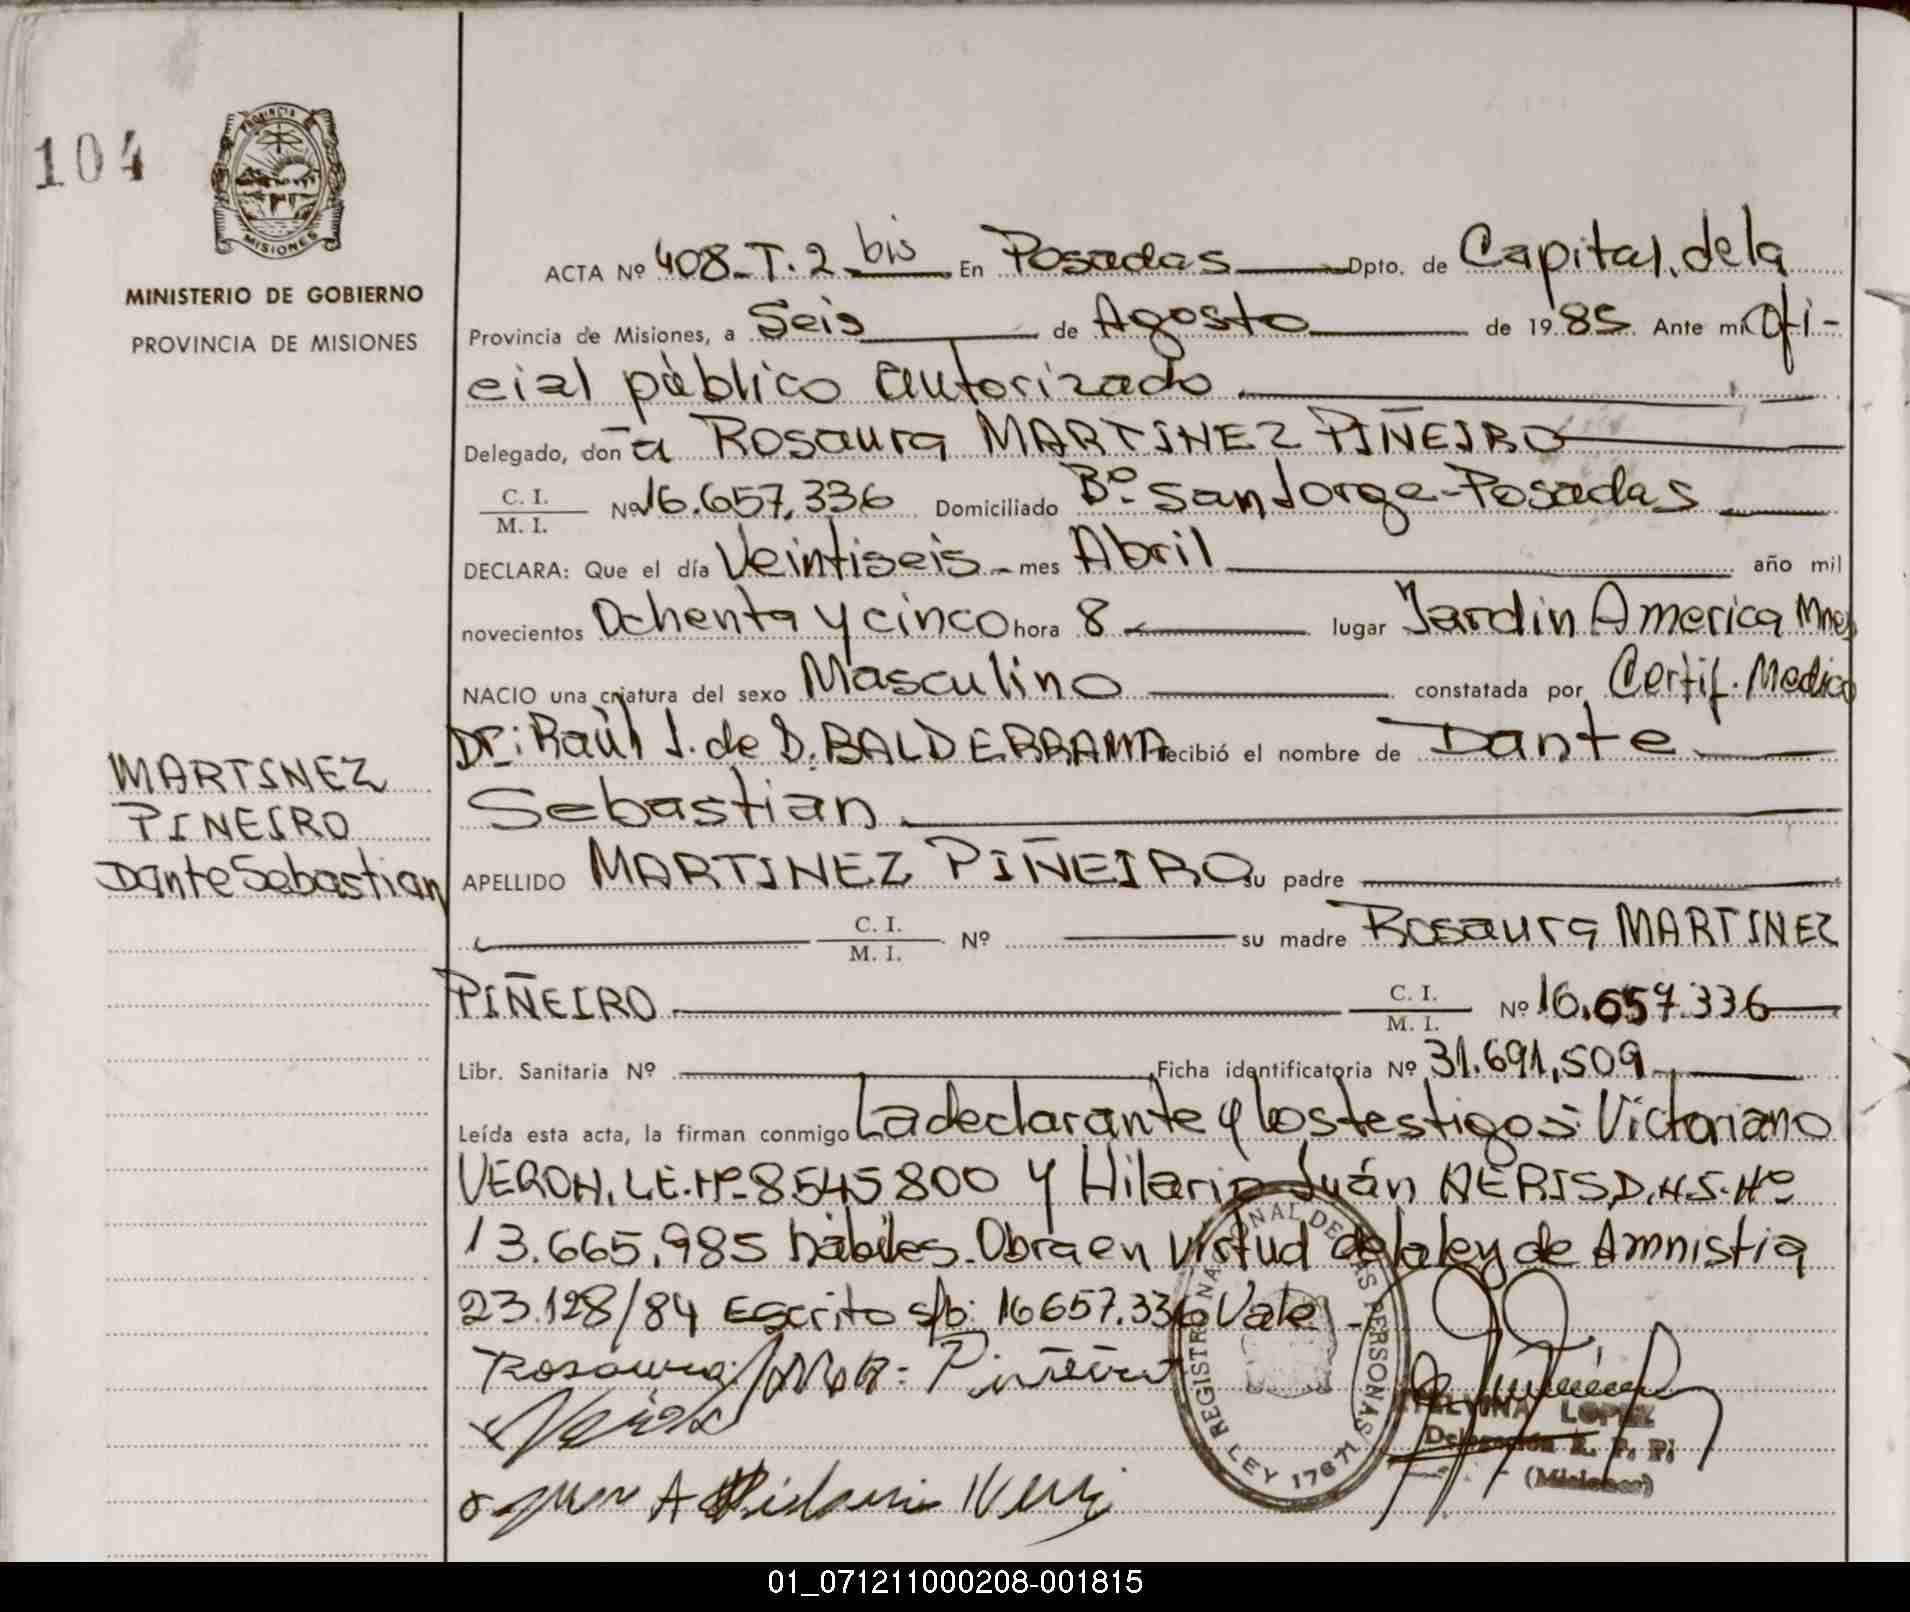 104
PROVINCIA
MISIONES
MINISTERIO DE GOBIERNO
PROVINCIA DE MISIONES
ACTA Nº 408-T.2 bis En Posadas Dpto. de Capital, dela
Provincia de Misiones, a Seis de Agosto de 1985 Ante mi Ofi-
cial público autorizado
Delegado, doña Rosaura MARTINEZ PIÑEIRO
C. I.
M. I. Nº 16.657.336 Domiciliado Bº San Jorge - Posadas
DECLARA: Que el día Veintiseis - mes Abril año mil
novecientos Ochenta y cinco hora 8 lugar Jardin America Mnes
NACIO una criatura del sexo Masculino constatada por Certif. Medico
Dr: Raùl J. de D. BALDERRAMA recibió el nombre de Dante
Sebastian
MARTINEZ
PINEIRO
Dante Sebastian
APELLIDO MARTINEZ PIÑEIRO su padre
C. I.
M. I. Nº su madre Rosaura MARTINEZ
PIÑEIRO C. I.
M. I. Nº 16.657.336
Libr. Sanitaria Nº Ficha identificatoria Nº 31.691,509
Leída esta acta, la firman conmigo La declarante y los testigos: Victoriano
VERON, L.E. Nº 8.545800 y Hilario Juán AERIS D.N.I. Nº
13.665.985 hábiles. Obra en virtud de la ley de Amnistia
23.128/84 Escrito s/b: 16657.336 Vale
Rosaura Piñeiro
REGISTRO NACIONAL DE LAS PERSONAS
LEY 17671
LOPEZ
Delegación R. P. P.
(Misiones)
01_071211000208-001815